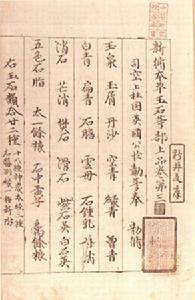 新修本草玉石等部上品卷第三
司空上柱國英國公臣勣等奉 勅修
玉泉 玉屑 丹沙 空青 綠青 曾青
白青 扁青 石膽 雲母 石鍾乳 朴消
消石 芒消 礬石 滑石 紫石英 白石英
五色石脂 太一餘粮 石中黃子 禹餘粮
右玉石類合廿二種